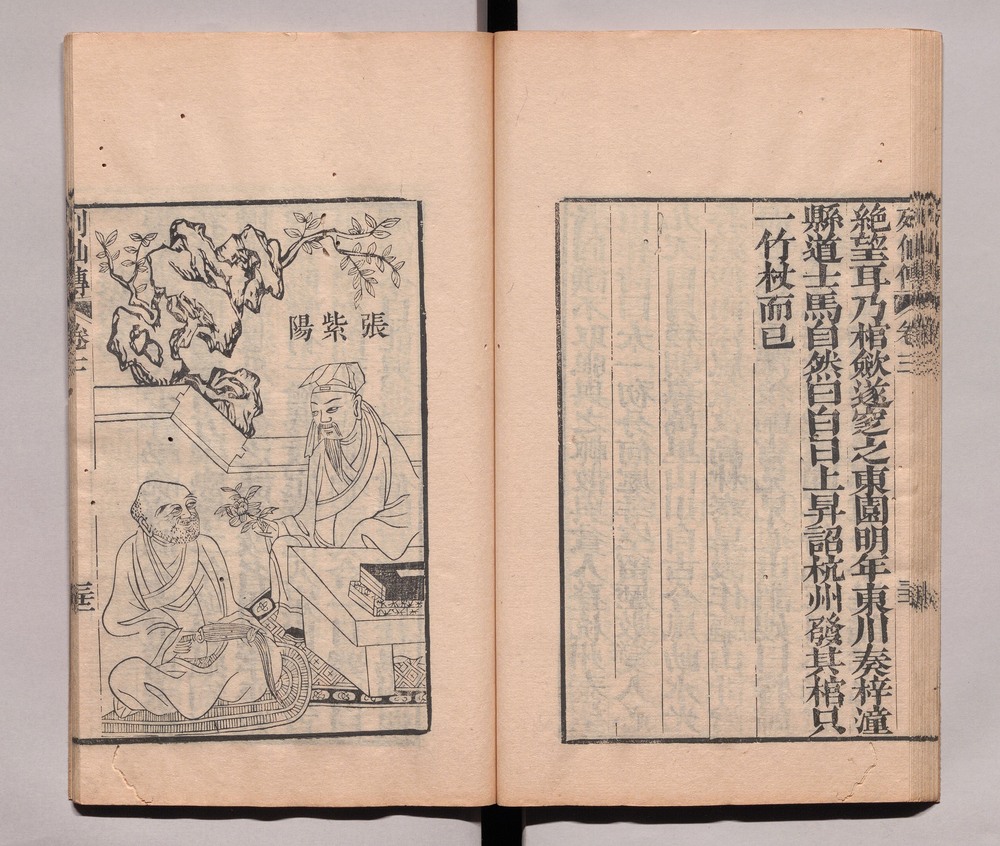 絶望耳乃棺斂遂窆之東園明年東川奏梓潼
縣道士馬自然曰白日上昇詔杭州發其棺只
一竹杖而已
列仙傳
卷三
張紫陽
列仙傳
卷三